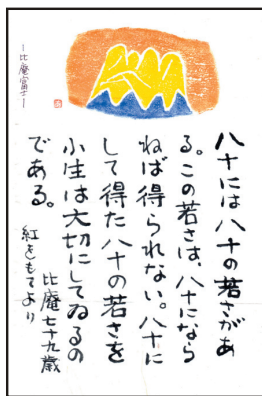 ―比庵富士―
八十には八十の若さがあ
る。この若さは、八十になら
ねば得られない。八十に
して得た八十の若さを
小生は大切にしてゐるの
である。
比庵七十九歳
紅をもてより